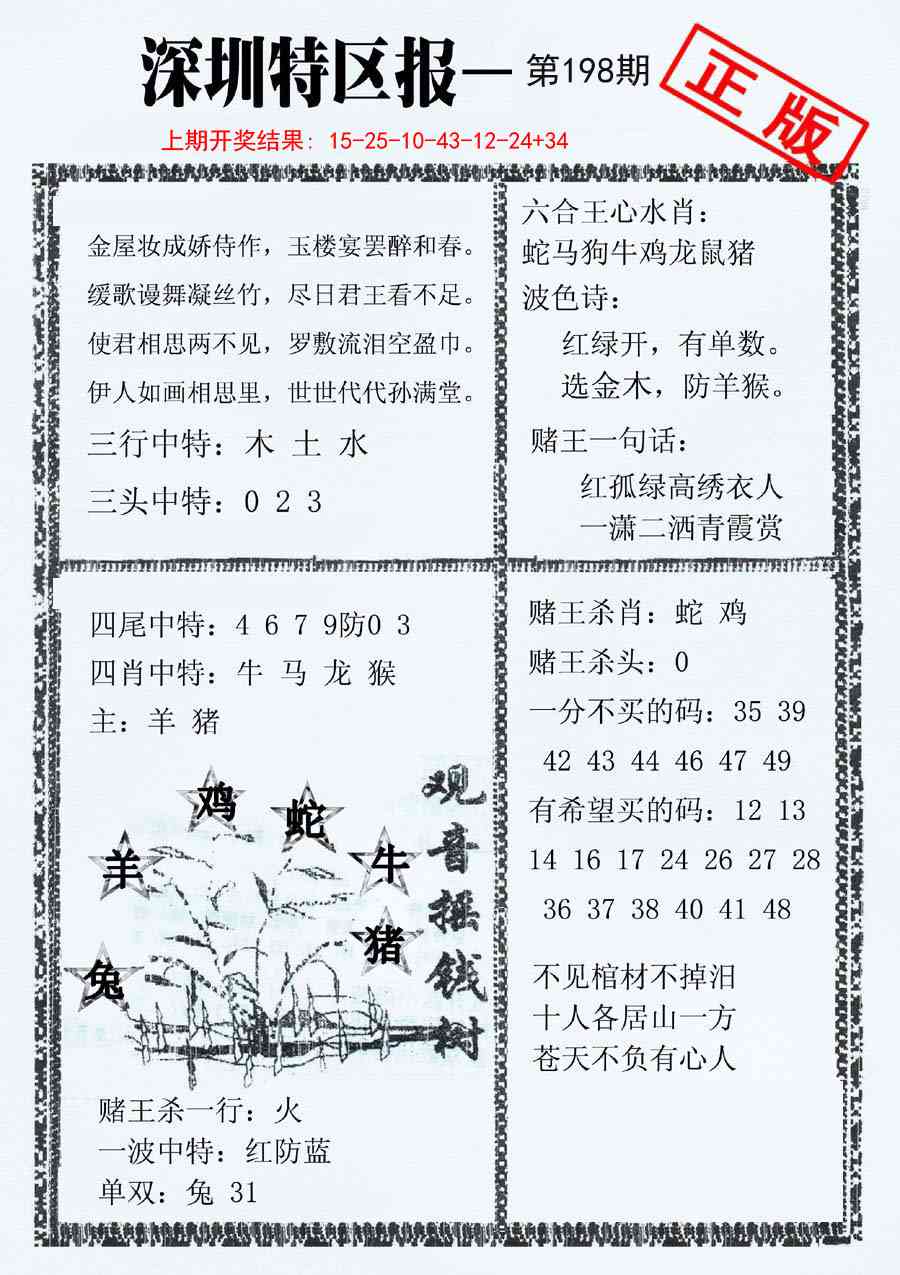 深圳特区报—第198期
正版
上期开奖结果：15-25-10-43-12-24+34
金屋妆成娇侍作，玉楼宴罢醉和春。
缓歌谩舞凝丝竹，尽日君王看不足。
使君相思两不见，罗敷流泪空盈巾。
伊人如画相思里，世世代代孙满堂。
三行中特：木 土 水
三头中特：0 2 3
六合王心水肖：
蛇马狗牛鸡龙鼠猪
波色诗：
红绿开，有单数。
选金木，防羊猴。
赌王一句话：
红孤绿高绣衣人
一潇二洒青霞赏
四尾中特：4 6 7 9防0 3
四肖中特：牛 马 龙 猴
主：羊 猪
鸡
蛇
羊
牛
猪
兔
观音摇钱树
赌王杀一行：火
一波中特：红防蓝
单双：兔 31
赌王杀肖：蛇 鸡
赌王杀头：0
一分不买的码：35 39
42 43 44 46 47 49
有希望买的码：12 13
14 16 17 24 26 27 28
36 37 38 40 41 48
不见棺材不掉泪
十人各居山一方
苍天不负有心人